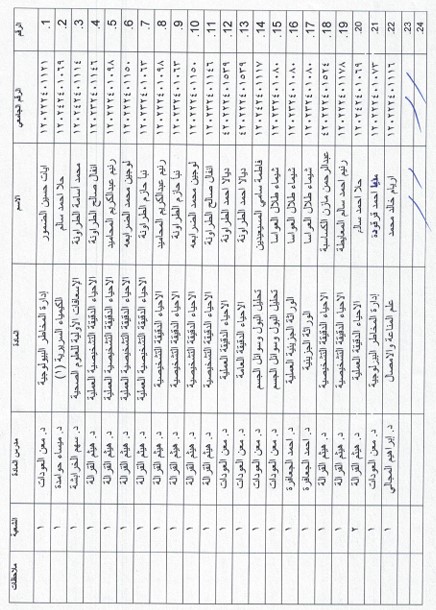 الرقم الرقم الجامعي الاسم المادة مدرس المادة الشعبة ملاحظات
1. ١٢٠٢٢٢٤٠١١٢١ ايات حسين الضمور إدارة المخاطر البيولوجية د. معن العودات ١
2. ١٢٠٢٤٢٤٠١٠٦٩ حلا احمد سالم الكيمياء السريرية (١) د. ميساء حوامدة ١
3. محمد اسامة الطراونة الإسعافات الأولية للعلوم الصحية د. سهم الخرابشة ١
4. ١٢٠٢٣٢٤٠١١٤٦ انفال صالح الطراونة الاحياء الدقيقة التشخيصية العملية د. هيثم القرالة ١
5. ١٢٠٢٣٢٤٠١٠٩٨ رنيم عبدالكريم المحاميد الاحياء الدقيقة التشخيصية العملية د. هيثم القرالة ١
6. ١٢٠٢٣٢٤٠١١٥٠ لوجين محمد الضرابعه الاحياء الدقيقة التشخيصية العملية د. هيثم القرالة ١
7. ١٢٠٢٣٢٤٠١٠٦٣ نبا حازم الطراونة الاحياء الدقيقة التشخيصية العملية د. هيثم القرالة ١
8. ١٢٠٢٣٢٤٠١٠٩٨ رنيم عبدالكريم المحاميد الاحياء الدقيقة التشخيصية د. هيثم القرالة ١
9. ١٢٠٢٣٢٤٠١٠٦٣ نبا حازم الطراونة الاحياء الدقيقة التشخيصية د. هيثم القرالة ١
10. ١٢٠٢٣٢٤٠١١٥٠ لوجين محمد الضرابعه الاحياء الدقيقة التشخيصية د. هيثم القرالة ١
11. ١٢٠٢٣٢٤٠١١٤٦ انفال صالح الطراونة الاحياء الدقيقة التشخيصية د. هيثم القرالة ١
12. ديالا احمد الطراونة الاحياء الدقيقة العملية د. معن العودات ١
13. ديالا احمد الطراونة الاحياء الدقيقة العامة د. معن العودات ١
14. ١٢٠٢٤٢٤٠١١١٧ فاطمة سامي المسيعديين تحليل البول وسوائل الجسم د. معن العودات ١
15. ١٢٠٢٣٢٤٠١٠٨٠ شيماء طلال العواسا تحليل البول وسوائل الجسم د. معن العودات ١
16. ١٢٠٢٣٢٤٠١٠٨٠ شيماء طلال العواسا الوراثة الجزيئية العملية د. احمد الجعافرة ١
17. ١٢٠٢٣٢٤٠١٠٨٠ شيماء طلال العواسا الوراثة الجزيئية د. احمد الجعافرة ١
18. عبدالرحمن مازن الكساسبة الاحياء الدقيقة التشخيصية د. هيثم القرالة ١
19. رنيم احمد سالم المعايطة الاحياء الدقيقة التشخيصية د. هيثم القرالة ١
20. ١٢٠٢٤٢٤٠١٠٦٩ حلا احمد سالم الاحياء الدقيقة العملية د. هيثم القرالة ٢
21. احمد قرقودة إدارة المخاطر البيولوجية د. معن العودات ١
22. اريام خالد محمد علم المناعة والامصال د. إبراهيم المجالي ١
23.
24.